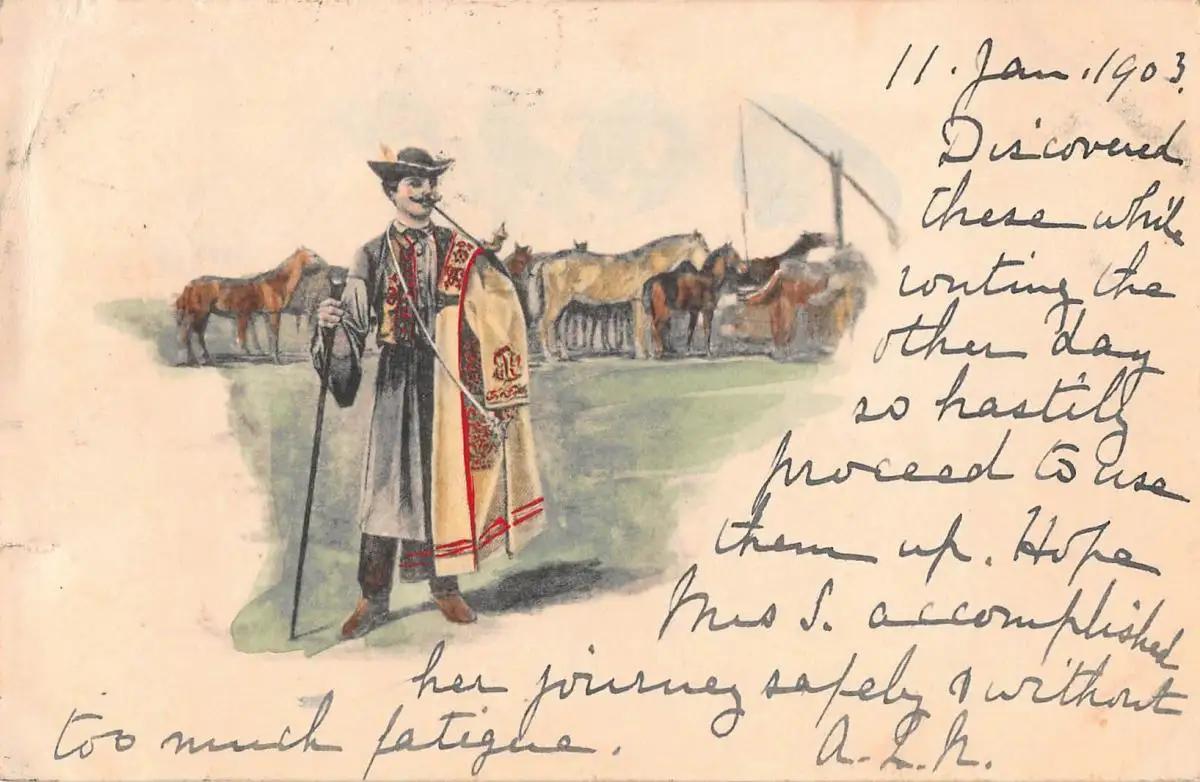 11. Jan. 1903.
Discovered
these while
routing the
other day
so hastily
proceed to use
them up. Hope
Mrs S. accomplished
her journey safely & without
too much fatigue.
A.L.N.